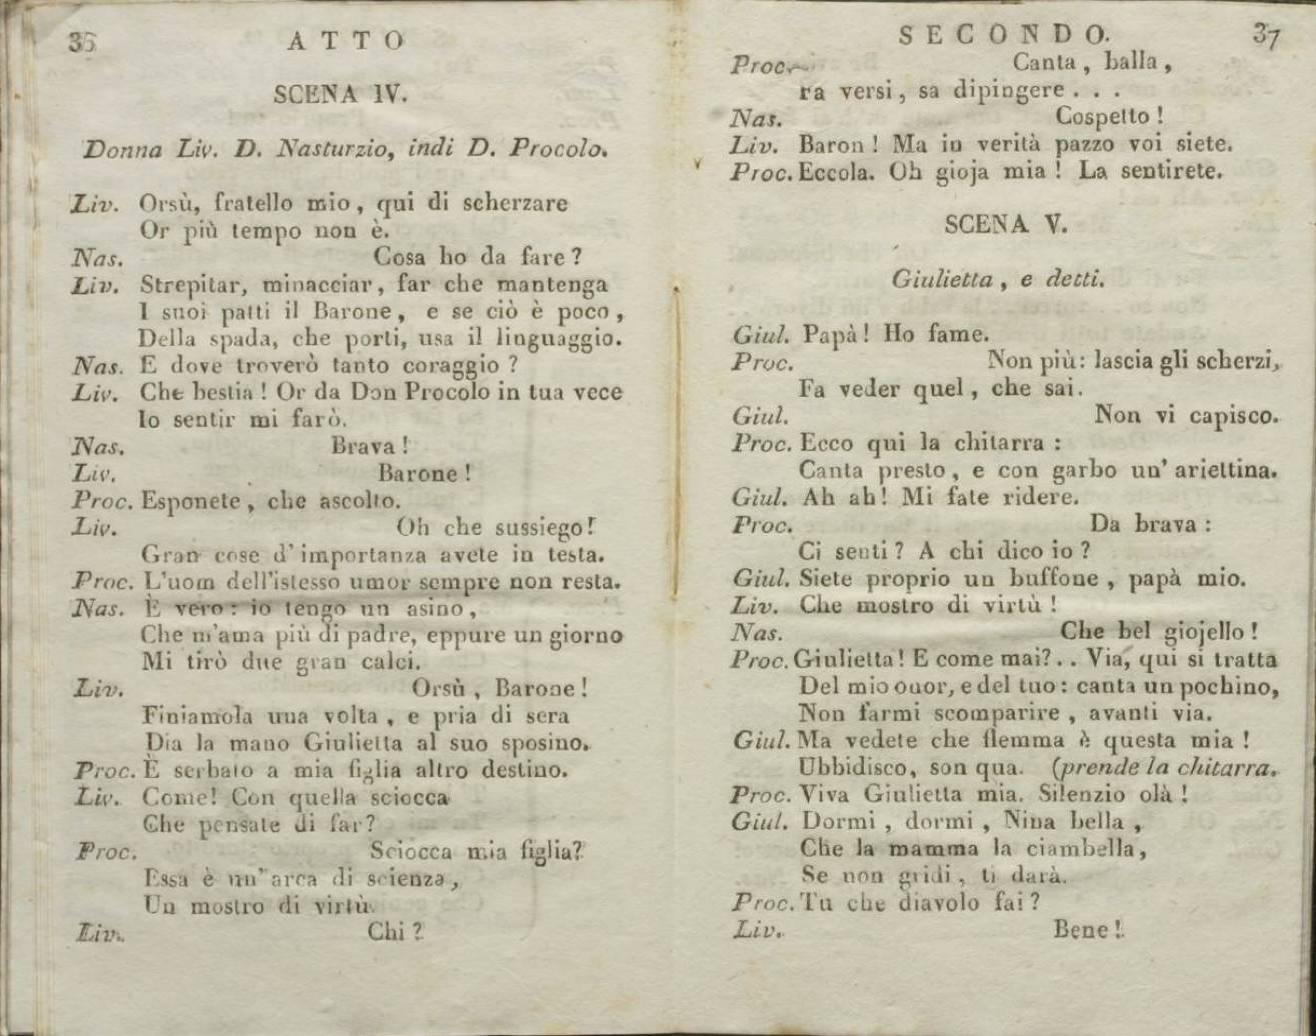 36 ATTO
SCENA IV.
Donna Liv. D. Nasturzio, indi D. Procolo.
Liv. Orsù, fratello mio, qui di scherzare
Or più tempo non è.
Nas. Cosa ho da fare?
Liv. Strepitar, minacciar, far che mantenga
I suoi patti il Barone, e se ciò è poco,
Della spada, che porti, usa il linguaggio.
Nas. E dove troverò tanto coraggio?
Liv. Che bestia! Or da Don Procolo in tua vece
Io sentir mi farò.
Nas. Brava!
Liv. Barone!
Proc. Esponete, che ascolto.
Liv. Oh che sussiego!
Gran cose d'importanza avete in testa.
Proc. L'uom dell'istesso umor sempre non resta.
Nas. È vero: io tengo un asino,
Che m'ama più di padre, eppure un giorno
Mi tirò due gran calci.
Liv. Orsù, Barone!
Finiamola una volta, e pria di sera
Dia la mano Giulietta al suo sposino.
Proc. È serbato a mia figlia altro destino.
Liv. Come! Con quella sciocca
Che pensate di far?
Proc. Sciocca mia figlia?
Essa è un'arca di scienza,
Un mostro di virtù.
Liv. Chi?
SECONDO. 37
Proc. Canta, balla,
Fa versi, sa dipingere...
Nas. Cospetto!
Liv. Baron! Ma in verità pazzo voi siete.
Proc. Eccola. Oh gioja mia! La sentirete.
SCENA V.
Giulietta, e detti.
Giul. Papà! Ho fame.
Proc. Non più: lascia gli scherzi,
Fa veder quel, che sai.
Giul. Non vi capisco.
Proc. Ecco qui la chitarra:
Canta presto, e con garbo un' ariettina.
Giul. Ah ah! Mi fate ridere.
Proc. Da brava:
Ci senti? A chi dico io?
Giul. Siete proprio un buffone, papà mio.
Liv. Che mostro di virtù!
Nas. Che bel giojello!
Proc. Giulietta! E come mai?.. Via, qui si tratta
Del mio onor, e del tuo: canta un pochino,
Non farmi scomparire, avanti via.
Giul. Ma vedete che flemma è questa mia!
Ubbidisco, son qua. (prende la chitarra.
Proc. Viva Giulietta mia. Silenzio olà!
Giul. Dormi, dormi, Nina bella,
Che la mamma la ciambella,
Se non gridi, ti darà.
Proc. Tu che diavolo fai?
Liv. Bene!